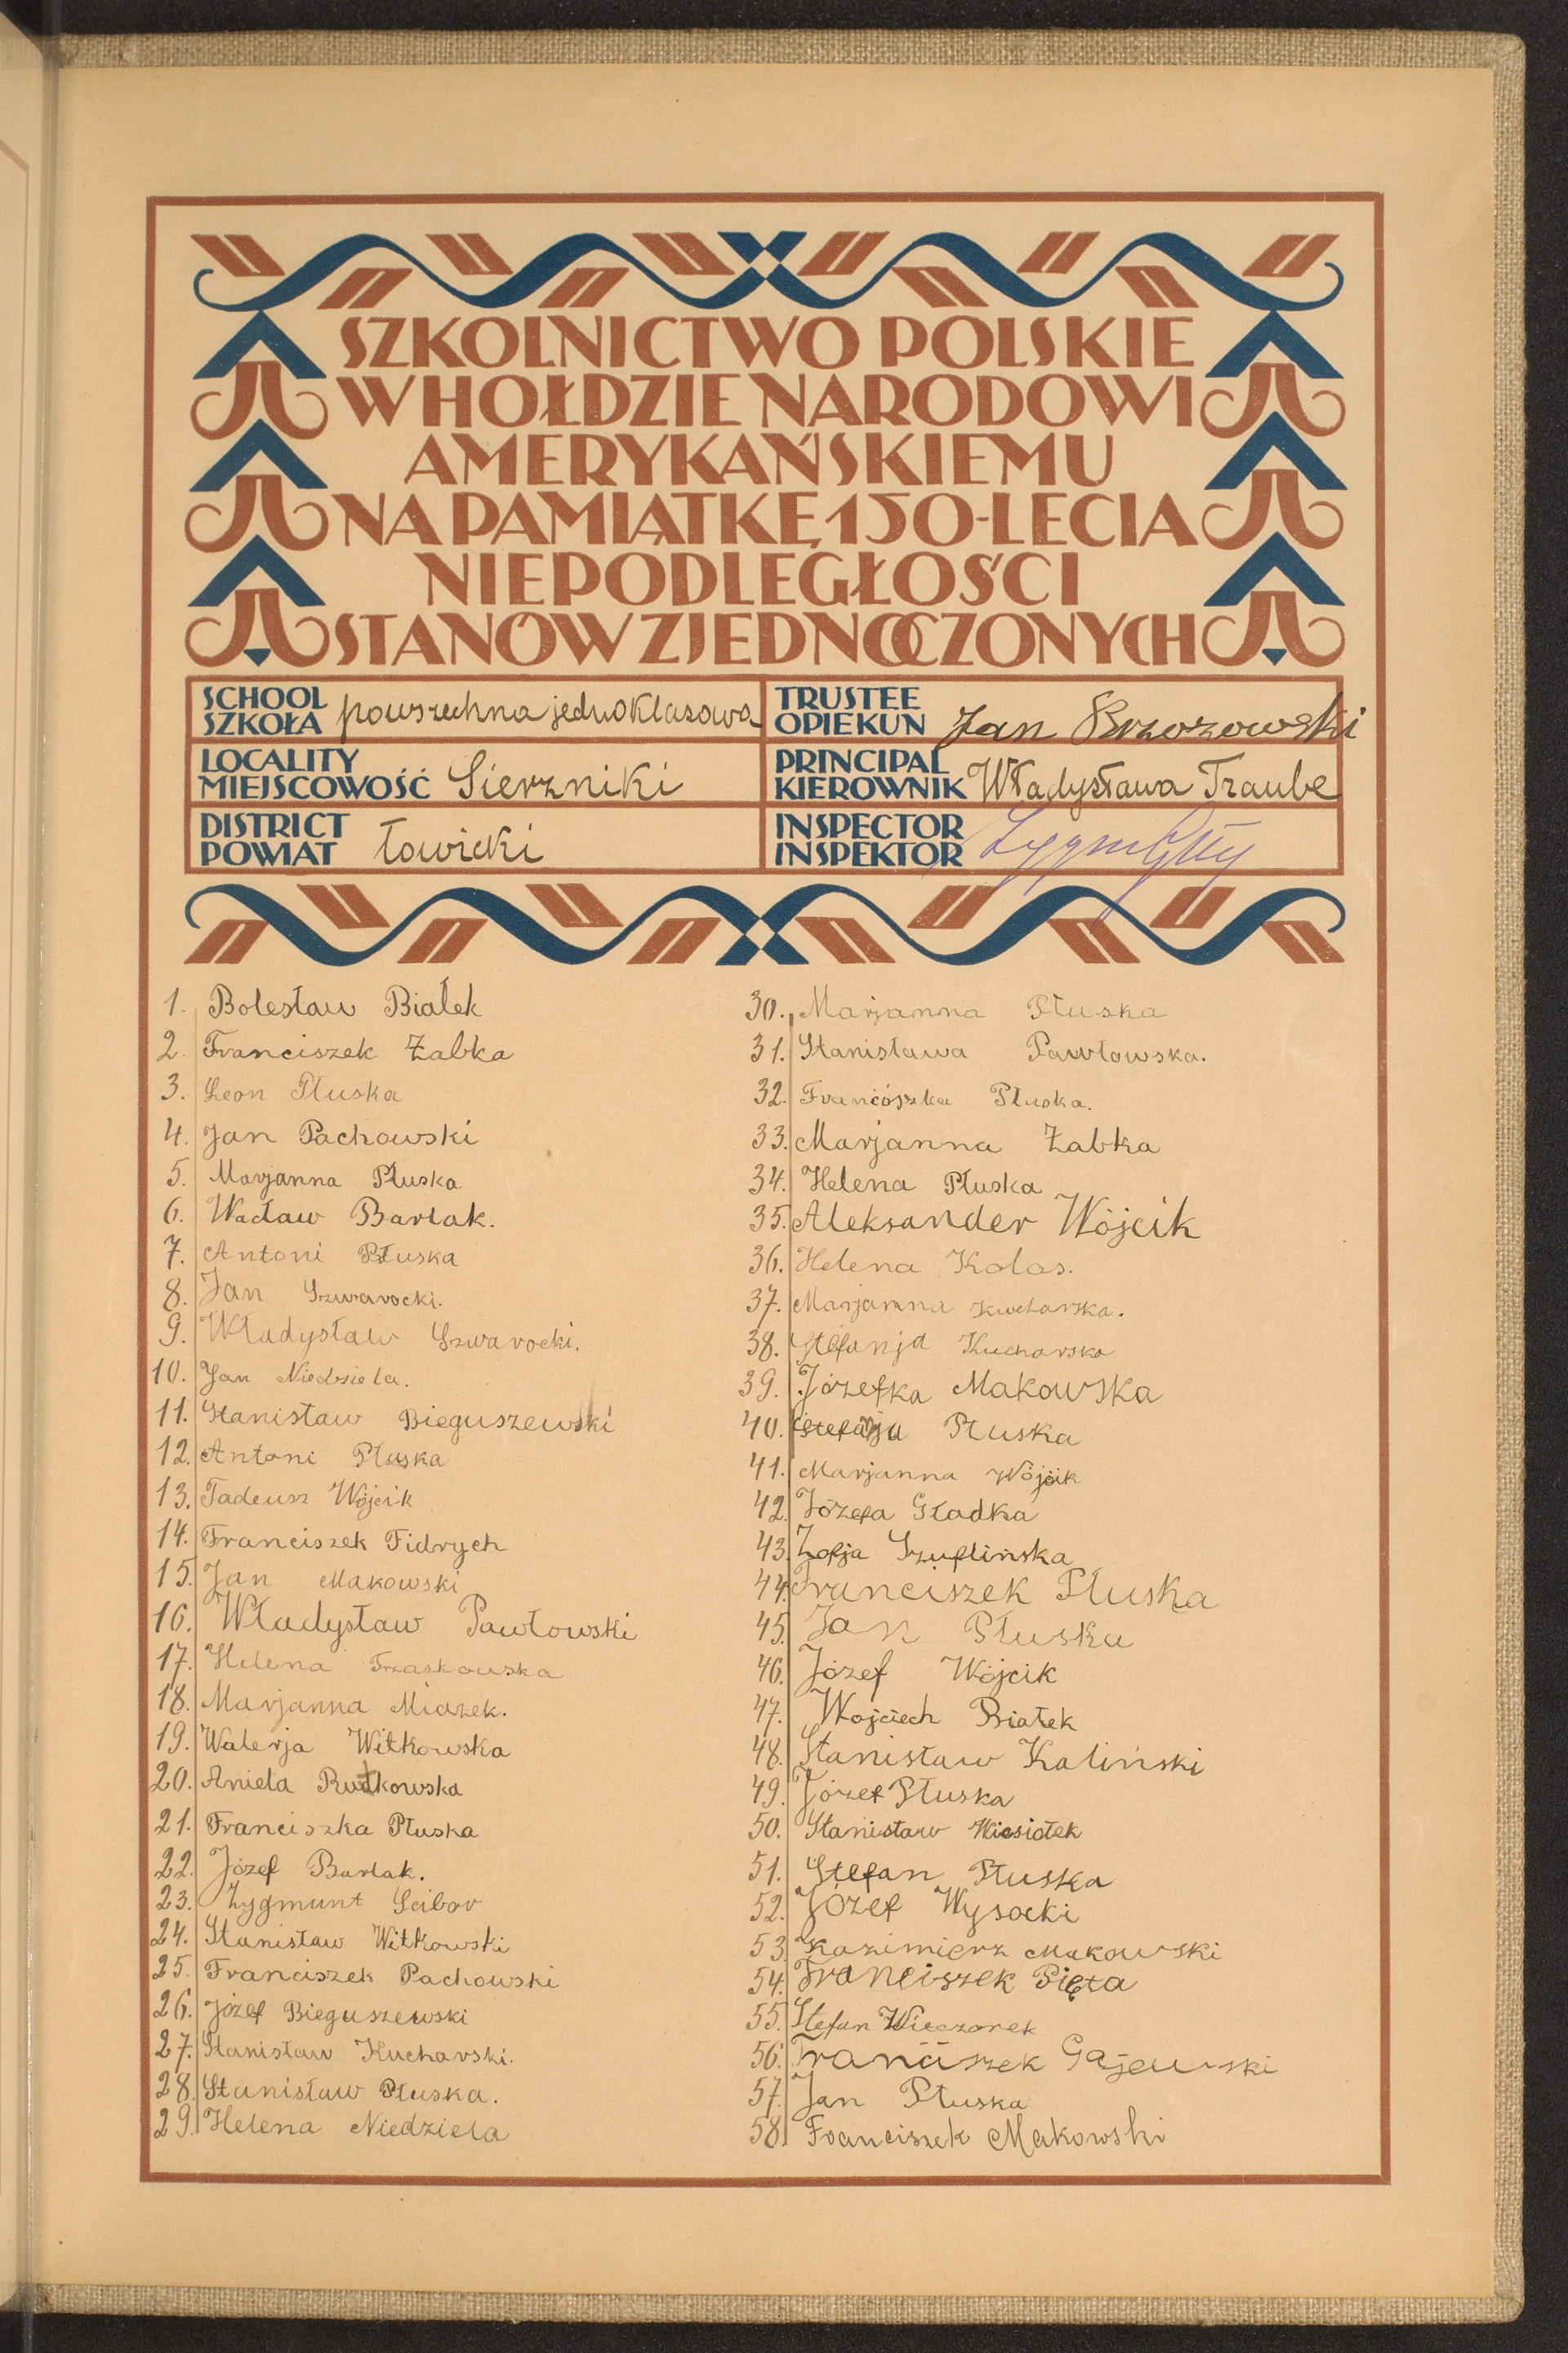 SZKOLNICTWO POLSKIE
W HOŁDZIE NARODOWI
AMERYKAŃSKIEMU
NA PAMIĄTKĘ 150-LECIA
NIEPODLEGŁOŚCI
STANÓW ZJEDNOCZONYCH
SCHOOL
SZKOŁA powszechna jednoklasowa
TRUSTEE
OPIEKUN Jan Brzozowski
LOCALITY
MIEJSCOWOŚĆ Sierzniki
PRINCIPAL
KIEROWNIK Władysława Traube
DISTRICT
POWIAT Łowicki
INSPECTOR
INSPEKTOR
1. Bolesław Białek
2. Franciszek Żabka
3. Leon Płuska
4. Jan Pachowski
5. Marjanna Płuska
6. Wacław Barlak.
7. Antoni Płuska
8. Jan Szwarocki.
9. Władysław Szwarocki.
10. Jan Niedziela.
11. Stanisław Bieguszewski
12. Antoni Płuska
13. Tadeusz Wójcik
14. Franciszek Fidrych
15. Jan Makowski
16. Władysław Pawłowski
17. Helena Trzaskowska
18. Marjanna Miazek.
19. Walerja Witkowska
20. Aniela Rutkowska
21. Franciszka Płuska
22. Józef Barlak.
23. Zygmunt Scibor
24. Stanisław Witkowski
25. Franciszek Pachowski
26. Józef Bieguszewski
27. Stanisław Kucharski.
28. Stanisław Płuska.
29. Helena Niedziela
30. Marjanna Płuska
31. Stanisława Pawłowska.
32. Franciszka Płuska.
33. Marjanna Żabka
34. Helena Płuska
35. Aleksander Wójcik
36. Helena Kolos.
37. Marjanna Kucharska.
38. Stefanja Kucharska
39. Józefka Makowska
40. Stefanja Płuska
41. Marjanna Wójcik
42. Józefa Gładka
43. Zofja Szuflińska
44. Franciszek Płuska
45. Jan Płuska
46. Józef Wójcik
47. Wojciech Białek
48. Stanisław Kaliński
49. Józef Płuska
50. Stanisław Wiesiołek
51. Stefan Płuska
52. Józef Wysocki
53. Kazimierz Makowski
54. Franciszek Pięta
55. Stefan Wieczorek
56. Franciszek Gajewski
57. Jan Płuska
58. Franciszek Makowski